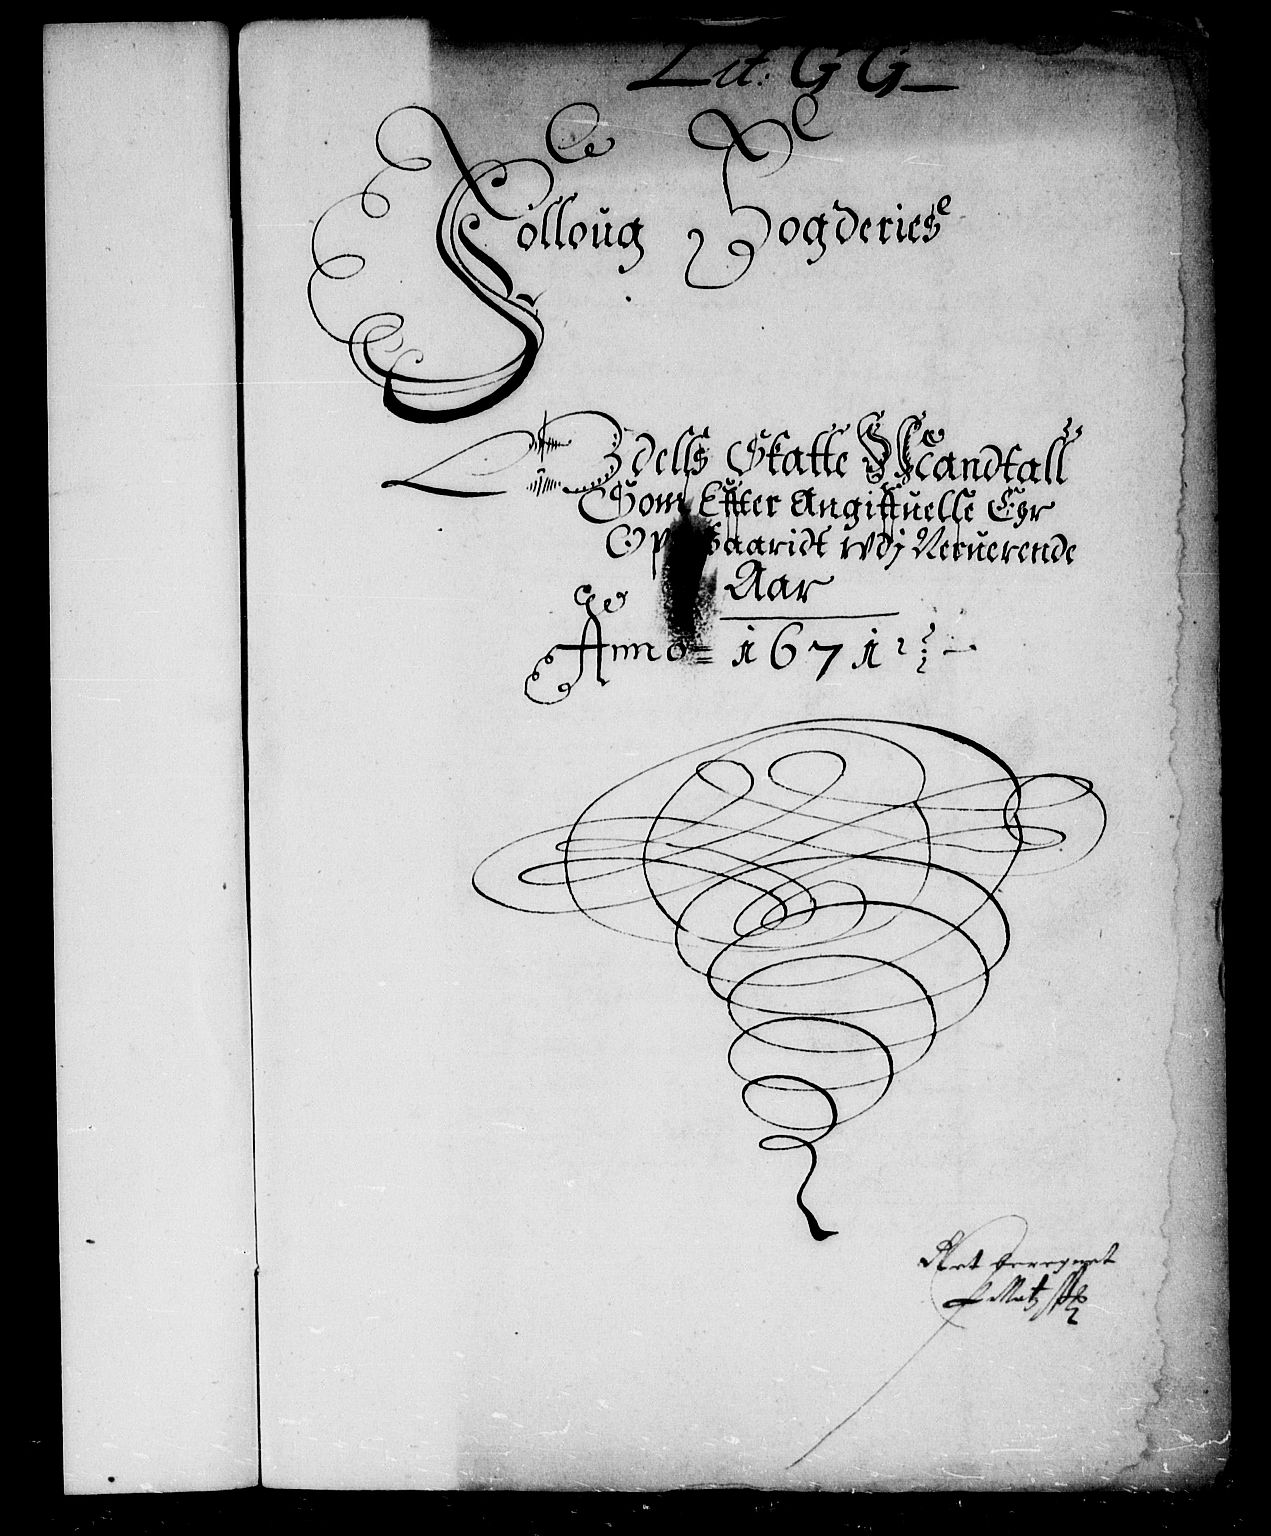 Lit: GG
Folloug Fogderies
Odells Skatte Mandtall
Som Effter Angiffuelle Er
Opsaaridt udj Neruerende
Aar
Anno = 1671
Ret beregnet